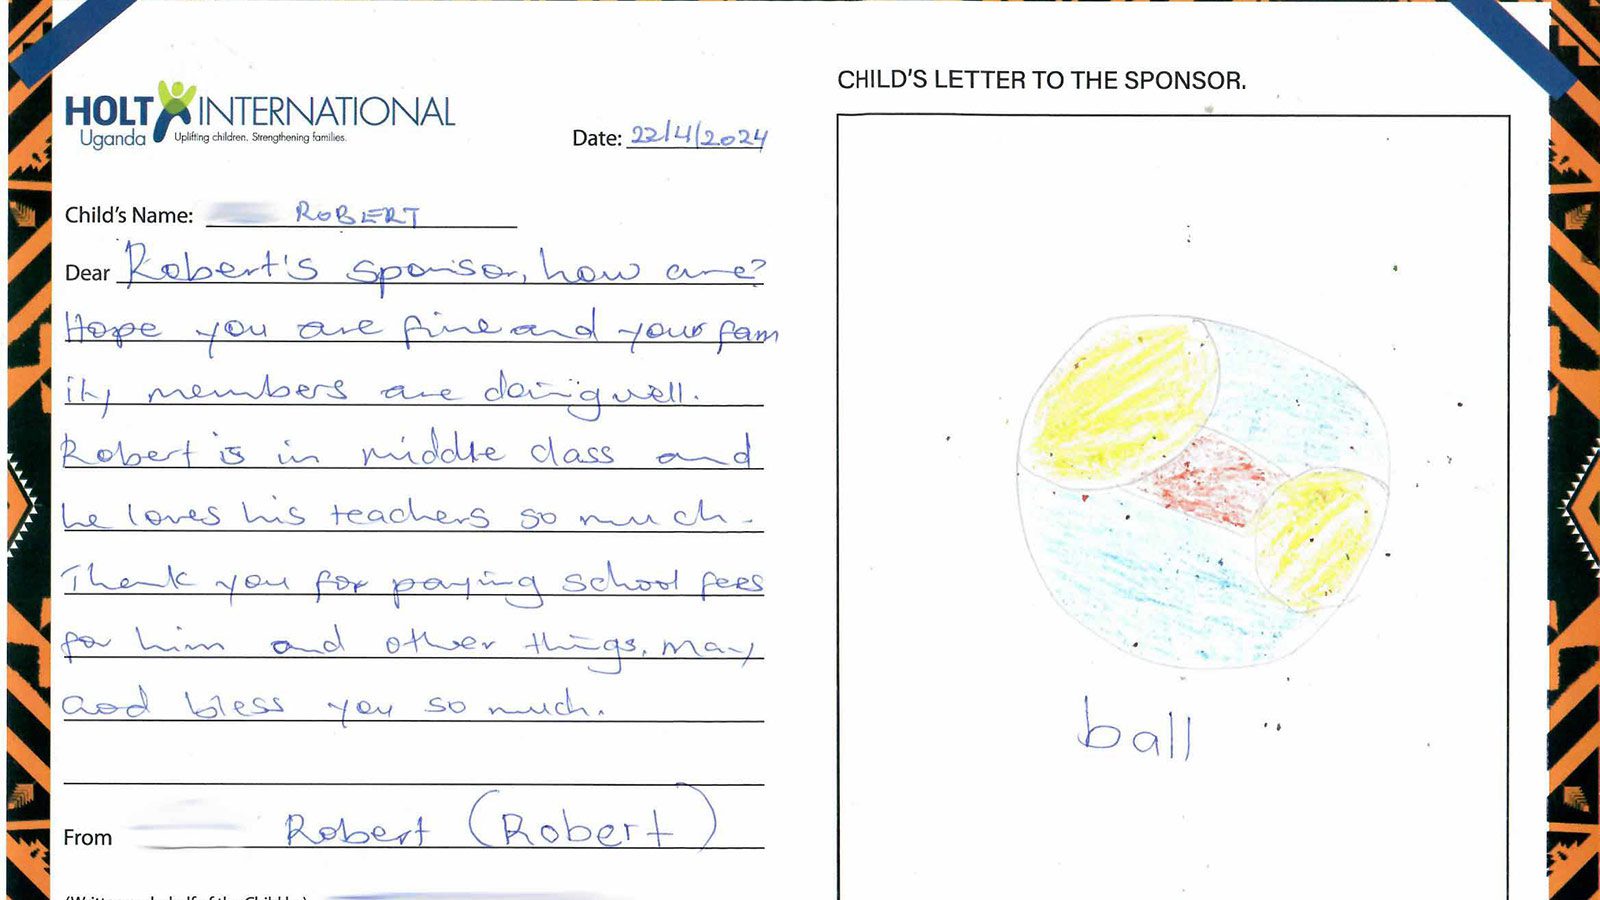 HOLT INTERNATIONAL
Uganda Uplifting children. Strengthening families.
Date: 22/4/2024
Child's Name: ROBERT
Dear Robert's sponsor, how are?
Hope you are fine and your fam
ily members are doing well.
Robert is in middle class and
he loves his teachers so much.
Thank you for paying school fees
for him and other things. May
God bless you so much.
From Robert (Robert)
CHILD'S LETTER TO THE SPONSOR.
ball